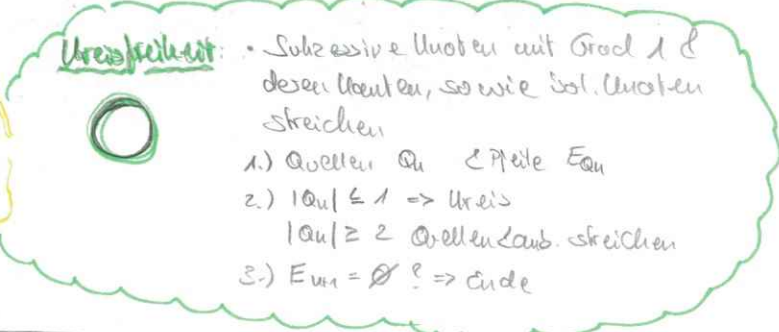 Kreisfreiheit: • Sukzessive Knoten mit Grad 1 &
deren Kanten, sowie isol. Knoten
streichen
1.) Quellen Qk & Pfeile EQk
2.) |Qk| ≤ 1 => Kreis
|Qk| ≥ 2 Quellen & anb. streichen
3.) Ek+1 = ∅ ? => Ende